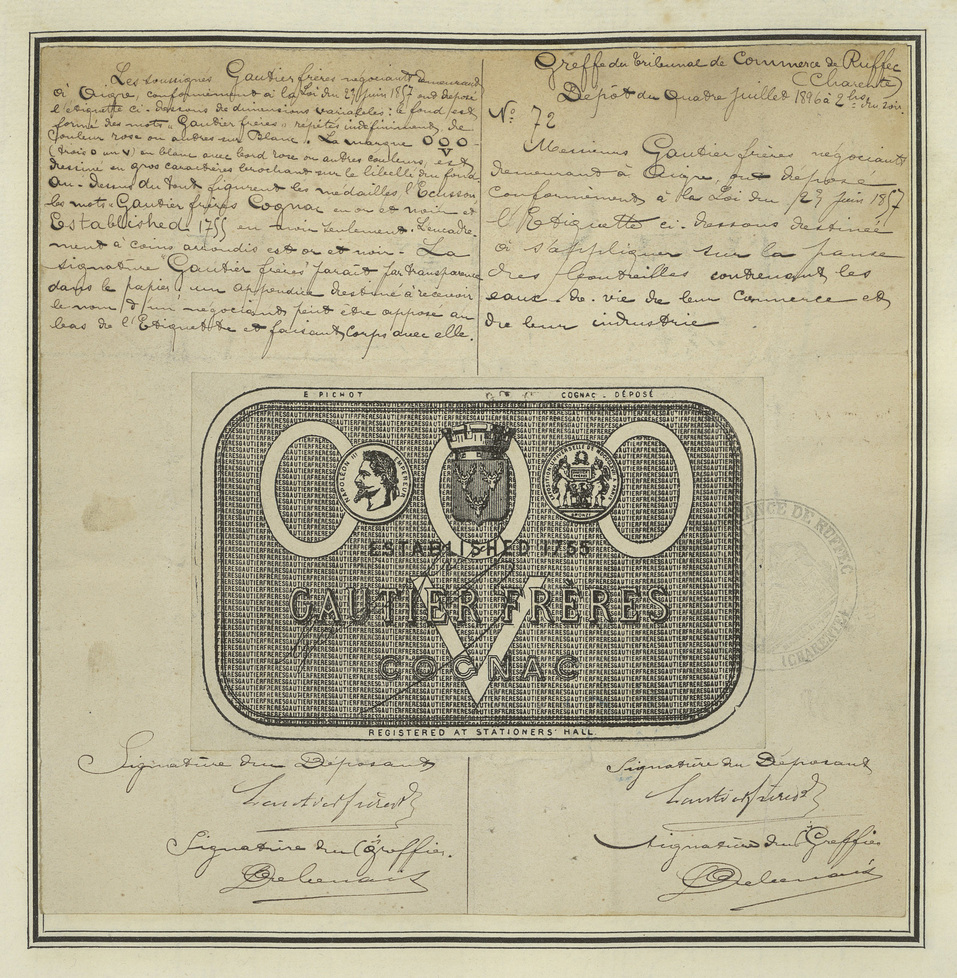 Les soussignés Gautier frères négociants demeurant
à Aigre, conformément à la Loi du 23 juin 1857 ont déposé
l'étiquette ci-dessous de dimensions variables; le fond est
formé des mots "Gautier frères" répétés indéfiniment, de
Couleur rose ou autres sur Blanc. La marque OOO
V
(trois o un V) en blanc avec bord rose ou autres couleurs, est
dessiné en gros caractères brochant sur le libellé du fond
au-dessus du tout figurent les médailles l'Ecusson
les mots Gautier frères Cognac en or et noir et
Established 1755 en noir seulement. L'encadre-
ment à coins arrondis est or et noir. La
signature Gautier frères parait par transparence
dans le papier; un appendice destiné à recevoir
le nom d'un négociant peut être apposé au
bas de l'Etiquette et faisant corps avec elle.
Greffe du Tribunal de Commerce de Ruffec
(Charente)
Dépôt du Quatre Juillet 1896 à 2 hrs du soir
No: 72
Messieurs Gautier frères négociants
demeurant à Aigre, ont déposé
conformément à la Loi du 23 Juin 1857
l'Etiquette ci-dessous destinée
à s'appliquer sur la panse
des bouteilles contenant les
eaux-de-vie de leur commerce et
de leur industrie.
E PICHOT
COGNAC - DÉPOSÉ
NAPOLÉON III EMPEREUR
ESTABLISHED 1755
GAUTIER FRÈRES
V
COGNAC
REGISTERED AT STATIONERS' HALL.
DE RUFFEC
(CHARENTE)
Signature du Déposant
Gautier frères
Signature du Greffier.
Signature du Déposant
Gautier frères
Signature du Greffier